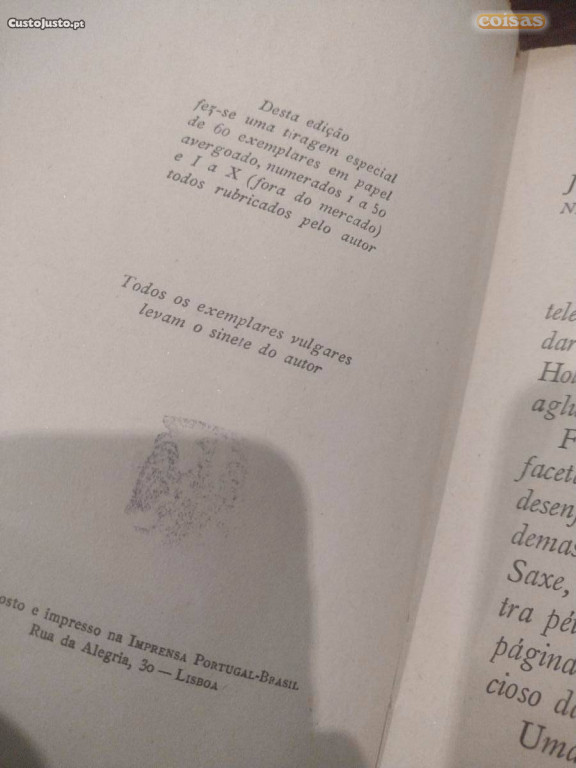 CustoJusto.pt
coisas
Desta edição
fez-se uma tiragem especial
de 60 exemplares em papel
avergoado, numerados 1 a 50
e I a X (fora do mercado)
todos rubricados pelo autor
Todos os exemplares vulgares
levam o sinete do autor
osto e impresso na IMPRENSA PORTUGAL-BRASIL
Rua da Alegria, 30 — LISBOA
J
N
tele
dar
Hol
aglu
F
faceta
desenf
demas
Saxe,
tra pé
página
cioso da
Uma